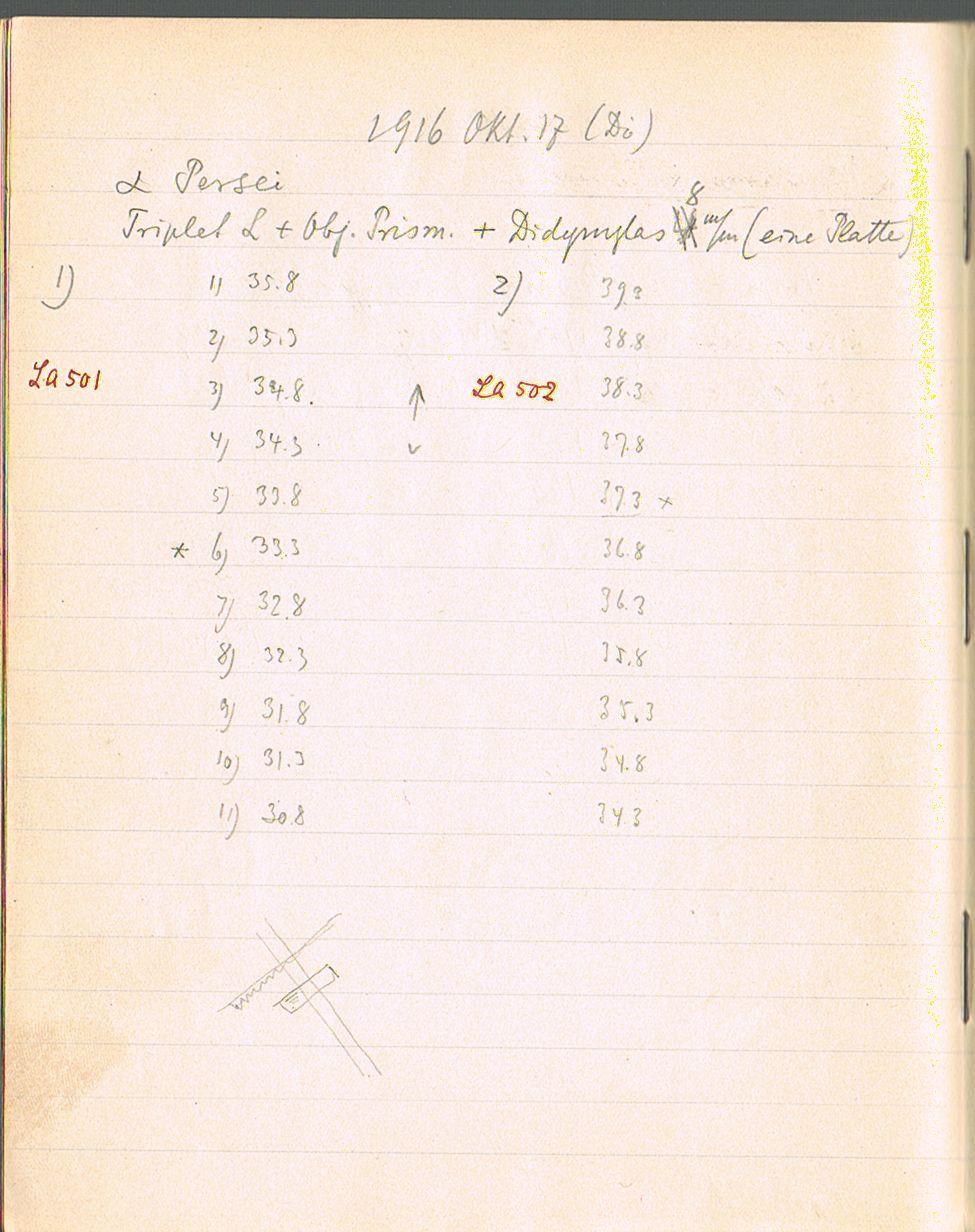 1916 Okt. 17 (Di)
α Persei
Triplet L + Obj. Prism. + Didymglas 8 m/m (eine Platte)
1) 1) 35.8 2) 39.3
2) 35.3 38.8
La 501 3) 34.8. ↑ La 502 38.3
4) 34.3 37.8
5) 33.8 37.3 *
* 6) 33.3 36.8
7) 32.8 36.3
8) 32.3 35.8
9) 31.8 35.3
10) 31.3 34.8
11) 30.8 34.3